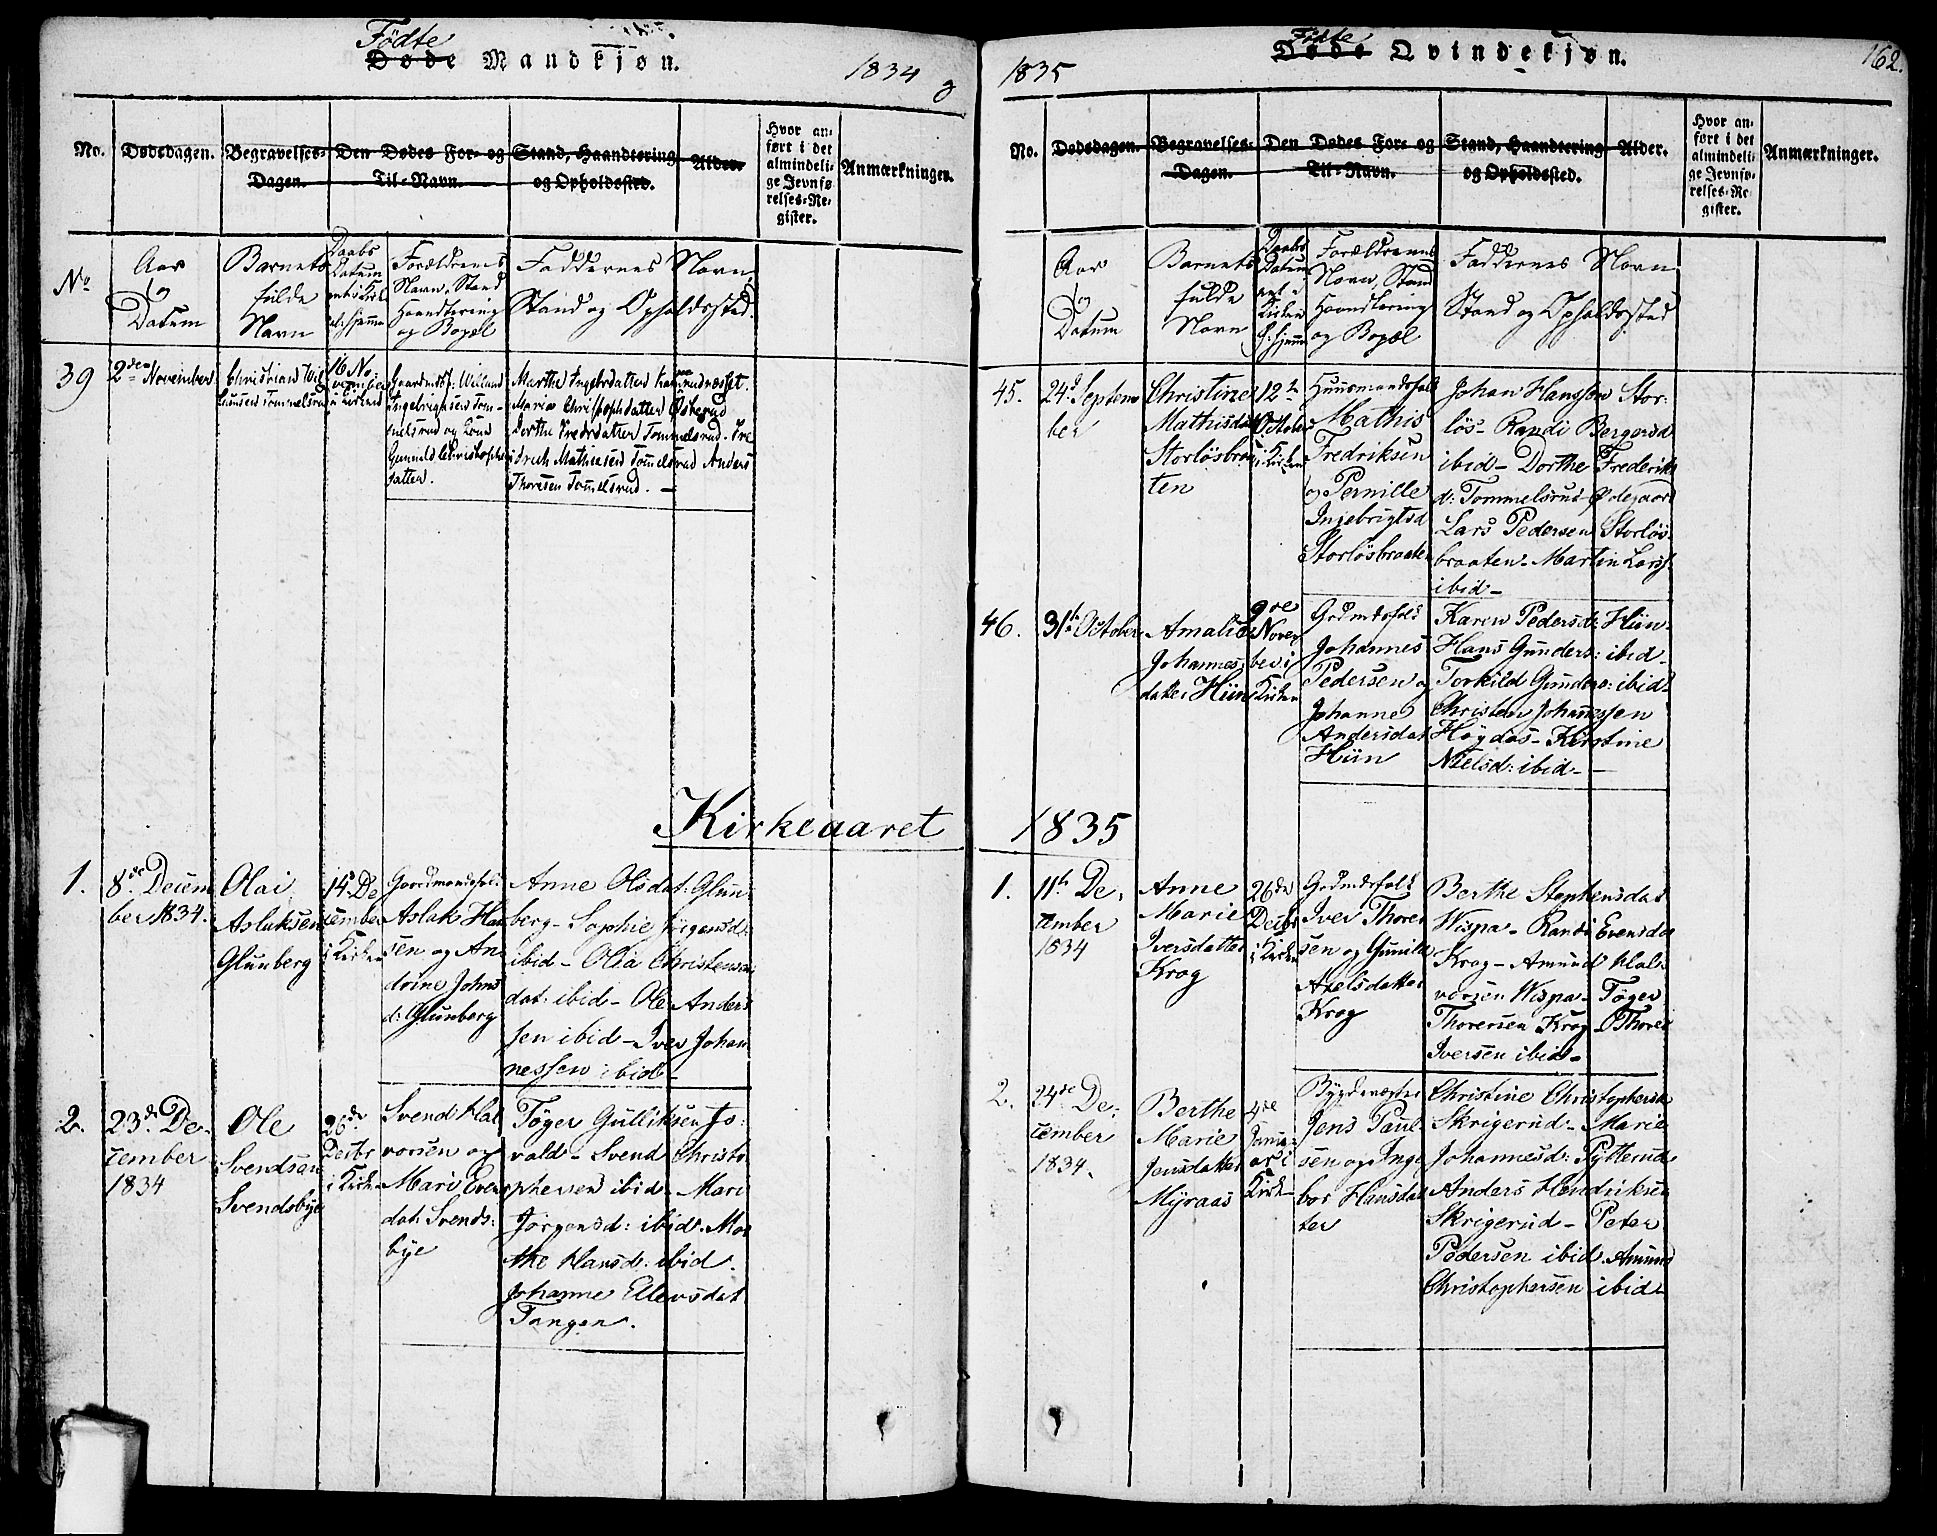 Fødte
Døde Mandkjøn.
1834
g
No.
Dødsdagen.
Begravelses-
Dagen.
Den Dødes For- og
Til-Navn.
Stand, Haandtering
og Opholdssted.
Alder.
Hvor an-
ført i det
almindeli-
ge Jevnfø-
relses-Re-
gister.
Anmærkninger.
No
Aar
og
Datum
Barnets
fulde
Navn
Daabs
Datum
Forældrenes
Navn, Stand
Haandtering
og Bopæl
Faddernes Navn
Stand og Opholdssted.
39
2den November
16 No-
vember
i Kirken
Tommelsrud og Kone
Marthe Ingebrdatter
Marie Christophdatter Østerud
Dorthe Fredrdatter Tommelsrud.
Mathiesen Tommelsrud Anders
Thoresen Tommelsrud.
Kirkeaaret
1.
8de Decem
ber 1834.
Olai
Aslaksen
Glunberg
14de De
cember
i Kirken
Gaardmandsfol:
Aslak Han
sen og An
drine Johns
d: Glunberg
Anne Olsdat: Glun-
berg - Sophie Jørgensd:
ibid - Olia Christens
dat: ibid - Ole Anders
sen ibid - Iver Johan
nessen ibid -
2.
23de De-
cember
1834
Ole
Svendsen
Svendsbye
26de
Decbr
i Kirken
Svend Hal
vorsen og
Mari Evens
dat: Svends-
bye
Tøger Gulliksen Jo-
vald - Svend Christo
phersen ibid - Mari
Jørgensd: ibid. Mar
the Hansd: ibid.
Johanne Ellevsdat
Tangen.
1835
Fødte
Døde Qvindekjøn.
162.
No.
Dødsdagen.
Begravelses-
Dagen.
Den Dødes For- og
Til-Navn.
Stand, Haandtering
og Opholdssted.
Alder.
Hvor an-
ført i det
almindeli-
ge Jevnfø-
relses-Re-
gister.
Anmærkninger.
Aar
og
Datum
Barnets
fulde
Navn
Daabs
Datum
Kirken
Forældrenes
Navn, Stand
Haandtering
og Bopæl
Faddernes Navn
Stand og Opholdssted
45.
24de Septem
ber
Christine
Mathisdat
Storløsbraa
ten
12te
October
i Kirken
Huusmandsfolk
Mathis
Fredriksen
og Pernille
Ingebrigtsd
Storløsbraaten
Johan Hanssen Stor-
løs - Randi Bergersd
ibid - Dorthe Frederiks
d: Tommelsrud - Ødegaard
Lars Pedersen Storløs
braaten - Martin Larss
ibid -
46.
31te October
Amalie
Johannes-
datter Hiin
9de
Novem
ber i
Kirken
Grdmdsfolk
Johannes
Pedersen og
Johanne
Andersdat
Hiin
Karen Pedersd: Hiin -
Hans Gunders: ibid -
Torkild Gunders: ibid -
Christen Johannessen
Høydas - Kirstine
Nielsd: ibid -
1835
1.
11te De-
cember
1834
Anne
Marie
Iversdatter
Krog
26de
Decbr
i Kirken
Grdmdsfolk
Iver Thore
sen og Gunild
Axelsdatter
Krog
Berthe Stephensdat
Wispa - Randi Evensdat
Krog - Amund Hal-
vorsen Wispa - Tøger
Thorersen Krog - Thore
Iversen ibid -
2.
24de De-
cember
1834.
Berthe
Marie
Jensdatter
Myraas
4de
Janu-
ar i
Kirken
Jens Paul
sen og Inge
bor Hansdat
ter
Christine Christophersd
Skrigerud - Marie
Johannesd: Pytterud
Anders Hendriksen
Skrigerud - Peter
Pedersen ibid. Amund
Christophersen ibid -